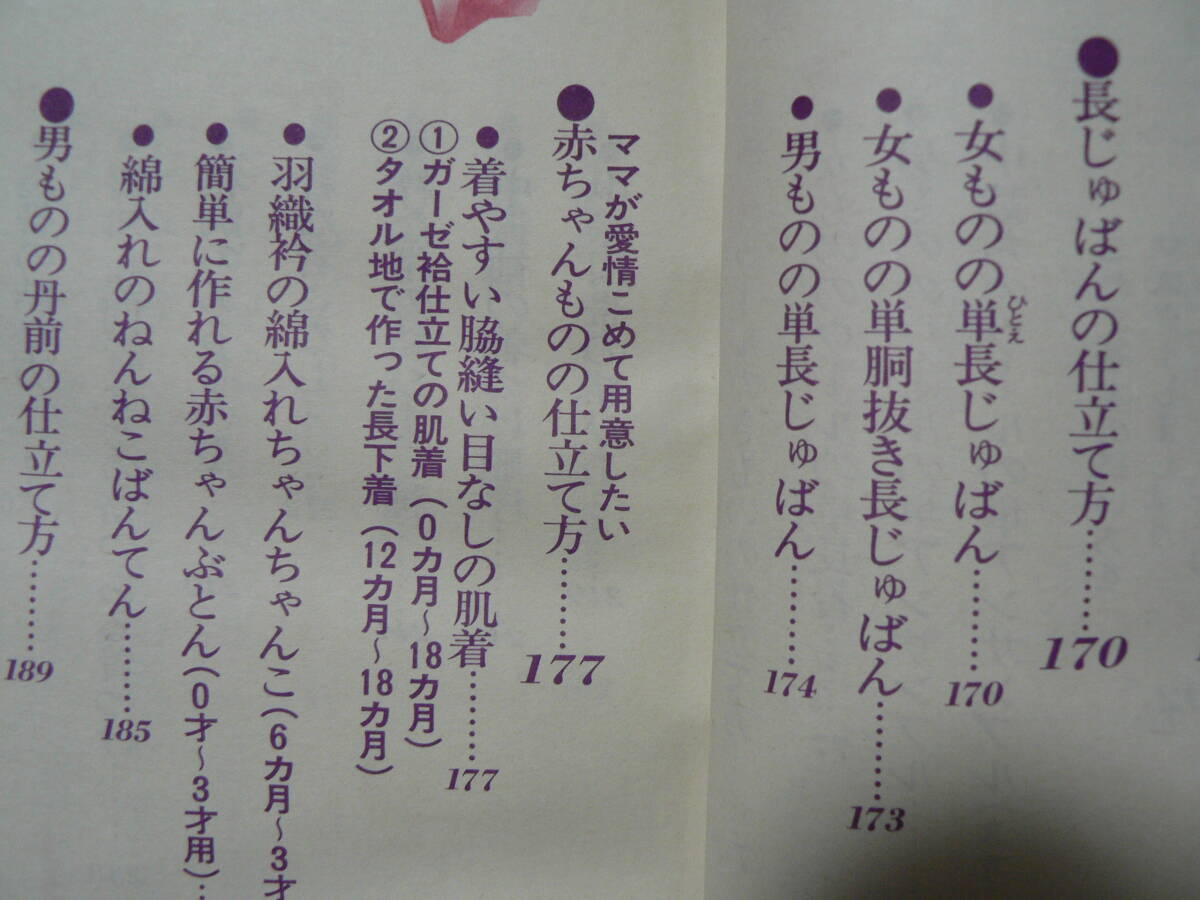 ●長じゅばんの仕立て方………170
●女ものの単長じゅばん………170
ひとえ
●女ものの単胴抜き長じゅばん………173
●男ものの単長じゅばん………174
ママが愛情こめて用意したい
●赤ちゃんものの仕立て方………177
●着やすい脇縫い目なしの肌着………177
①ガーゼ袷仕立ての肌着(0カ月~18カ月)
②タオル地で作った長下着(12カ月~18カ月)
●羽織衿の綿入れちゃんちゃんこ(6カ月~3才
●簡単に作れる赤ちゃんぶとん(0才~3才用)…
●綿入れのねんねこばんてん………185
●男ものの丹前の仕立て方………189